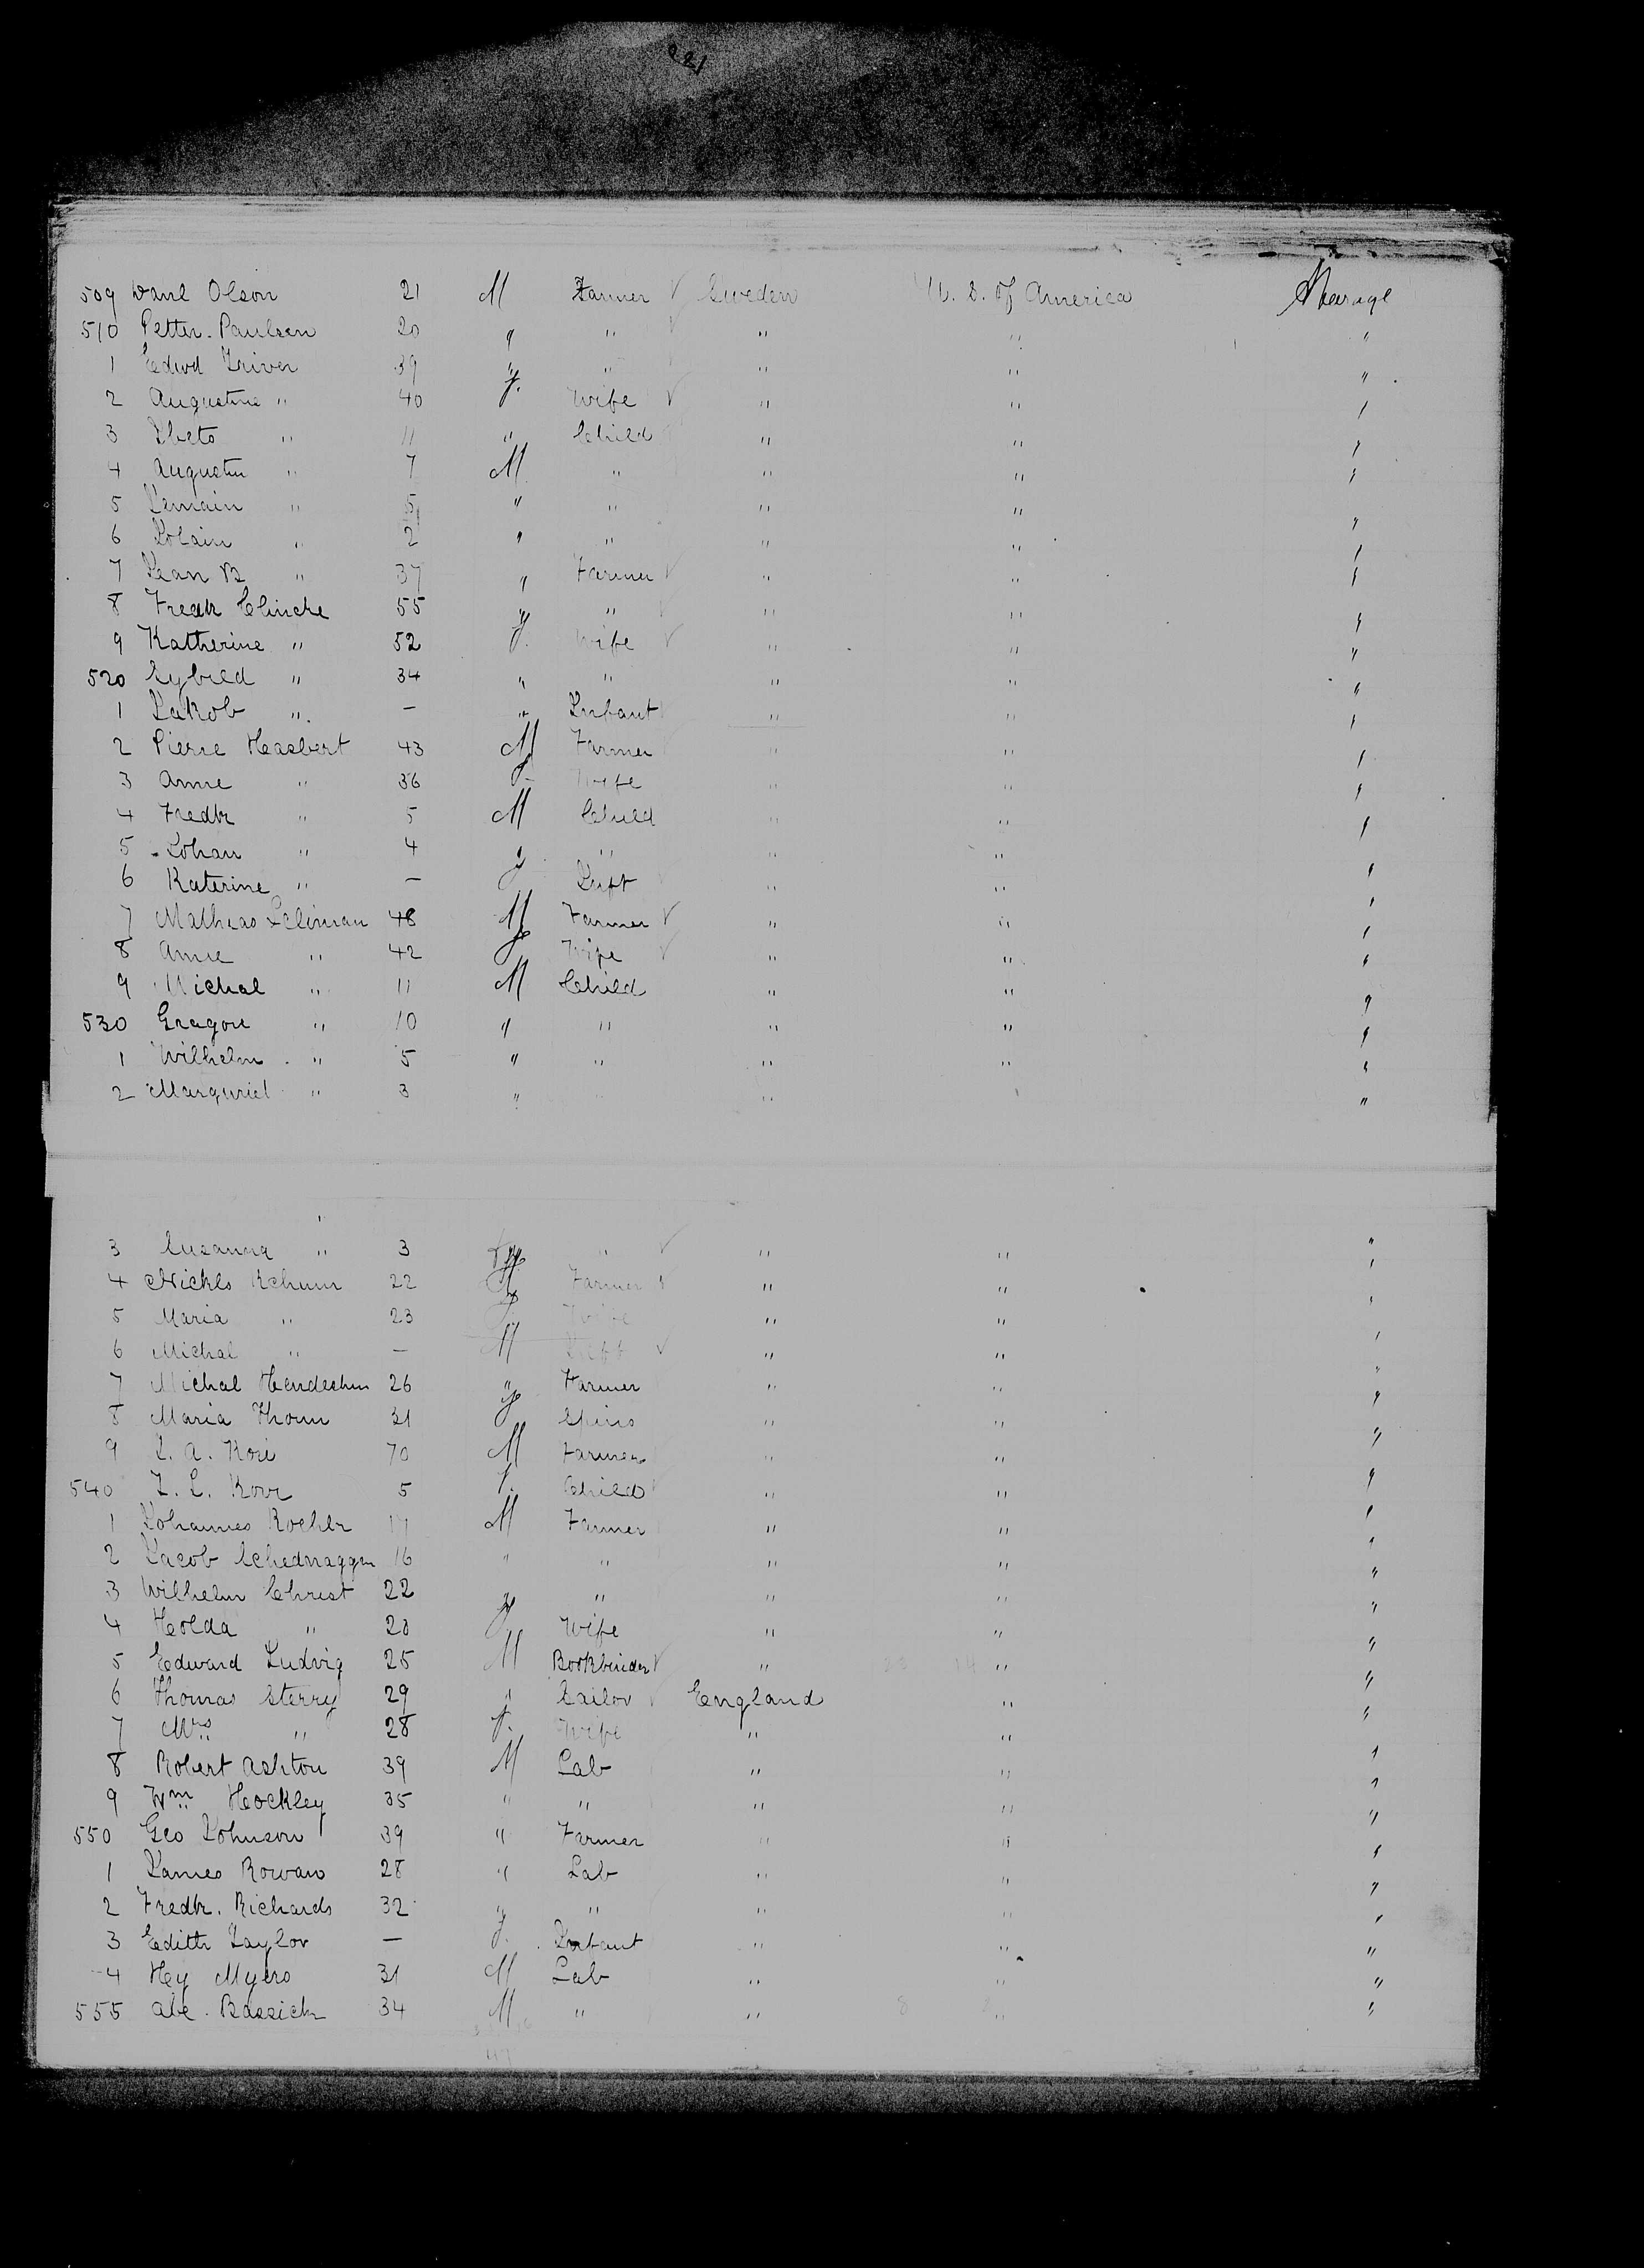 221
509 Danl Olson 21 M Farmer Sweden U. S. of America Steerage
510 Petter. Paulsen 20 " " " " "
1 Edwd Triver 39 " " " " "
2 Augustine " 40 F. Wife " " "
3 " 11 " Child " " "
4 Augustin " 7 M " " " "
5 " 5 " " " " "
6 " 2 " " " " "
7 Jean B " 37 " Farmer " " "
8 Fredk Clincke 55 " " " " "
9 Katherine " 52 F. Wife " " "
520 Sybild " 34 " " " " "
1 Jakob " — " Infant " " "
2 Pierre Hasbert 43 M Farmer " " "
3 Anne " 36 F Wife " " "
4 Fredk " 5 M Child " " "
5 Johan " 4 " " " " "
6 Katerine " — F Inft " " "
7 Mathias 48 M Farmer " " "
8 Anne " 42 F Wife " " "
9 Michal " 11 M Child " " "
530 Gragore " 10 " " " " "
1 Wilhelm " 5 " " " " "
2 Marguriet " 3 " " " " "
3 Susanna " 3 F " " " "
4 Nickls 22 M Farmer " " "
5 Maria " 23 F. Wife " " "
6 Michal " — M Inft " " "
7 Michal 26 " Farmer " " "
8 Maria Thom 31 F Spins " " "
9 J. A. 70 M Farmer " " "
540 5 F. Child " " "
1 Johannes Roehlr 17 M Farmer " " "
2 Jacob 16 " " " " "
3 Wilhelm Christ 22 " " " " "
4 Holda " 20 F Wife " " "
5 Edward Ludvig 25 M Bookbinder " " "
6 Thomas Sterry 29 " Sailor England " "
7 Mrs " 28 F. Wife " " "
8 Robert Ashton 39 M Lab " " "
9 Wm Hockley 35 " " " " "
550 Geo Johnson 39 " Farmer " " "
1 James Rowan 28 " Lab " " "
2 Fredk. Richards 32 " " " " "
3 Edith Taylor — F. Infant " " "
4 Hy Myers 31 M Lab " " "
555 Abe. Bassick 34 M " " " "